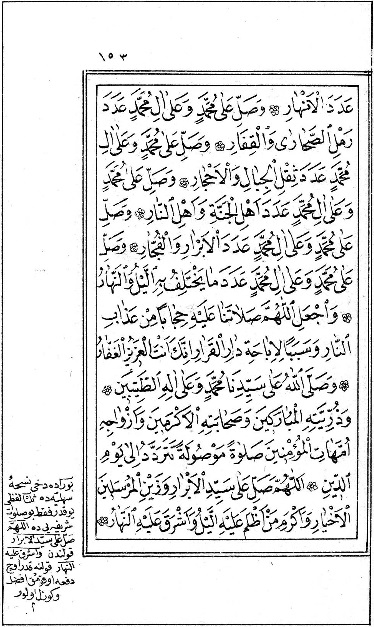 ١٥٣
عَدَدَ الْاَنْهَارِ ۞ وَصَلِّ عَلٰى مُحَمَّدٍ وَعَلٰى اٰلِ مُحَمَّدٍ عَدَدَ
رَمْلِ الصَّحَارٰى وَالْقِفَارِ ۞ وَصَلِّ عَلٰى مُحَمَّدٍ وَعَلٰى اٰلِ
مُحَمَّدٍ عَدَدَ ثِقْلِ الْجِبَالِ وَالْاَحْجَارِ ۞ وَصَلِّ عَلٰى مُحَمَّدٍ
وَعَلٰى اٰلِ مُحَمَّدٍ عَدَدَ اَهْلِ الْجَنَّةِ وَاَهْلِ النَّارِ ۞ وَصَلِّ
عَلٰى مُحَمَّدٍ وَعَلٰى اٰلِ مُحَمَّدٍ عَدَدَ الْاَبْرَارِ وَالْفُجَّارِ ۞ وَصَلِّ
عَلٰى مُحَمَّدٍ وَعَلٰى اٰلِ مُحَمَّدٍ عَدَدَ مَا يَخْتَلِفُ بِهِ الَّيْلُ وَالنَّهَارُ
۞ وَاجْعَلِ اللّٰهُمَّ صَلَاتَنَا عَلَيْهِ حِجَابًا مِنْ عَذَابِ
النَّارِ وَسَبَبًا لِاِبَاحَةِ دَارِ الْقَرَارِ اِنَّكَ اَنْتَ الْعَزِيزُ الْغَفَّارُ
۞ وَصَلَّى اللّٰهُ عَلٰى سَيِّدِنَا مُحَمَّدٍ وَعَلٰى اٰلِهِ الطَّيِّبِينَ ۞
وَذُرِّيَّتِهِ الْمُبَارَكِينَ وَصَحَابَتِهِ الْاَكْرَمِينَ وَاَزْوَاجِهِ
اُمَّهَاتِ الْمُؤْمِنِينَ صَلٰوةً مَوْصُولَةً تَتَرَدَّدُ اِلٰى يَوْمِ
الدِّينِ ۞ اَللّٰهُمَّ صَلِّ عَلٰى سَيِّدِ الْاَبْرَارِ وَزَيْنِ الْمُرْسَلِينَ
الْاَخْيَارِ وَاَكْرَمِ مَنْ اَظْلَمَ عَلَيْهِ الَّيْلُ وَاَشْرَقَ عَلَيْهِ النَّهَارُ ۞
بوراده دخى نسخهٔ
سهليه‌ده ثلثك لفظى
يوقدر فقط بو صلوات
شريفه‌ده اللهم
صل على سيد الابرار
قولندن واشرق عليه
النهار قولنه قدر اوچ
دفعه اوقومق افضل
وكوزل اولور